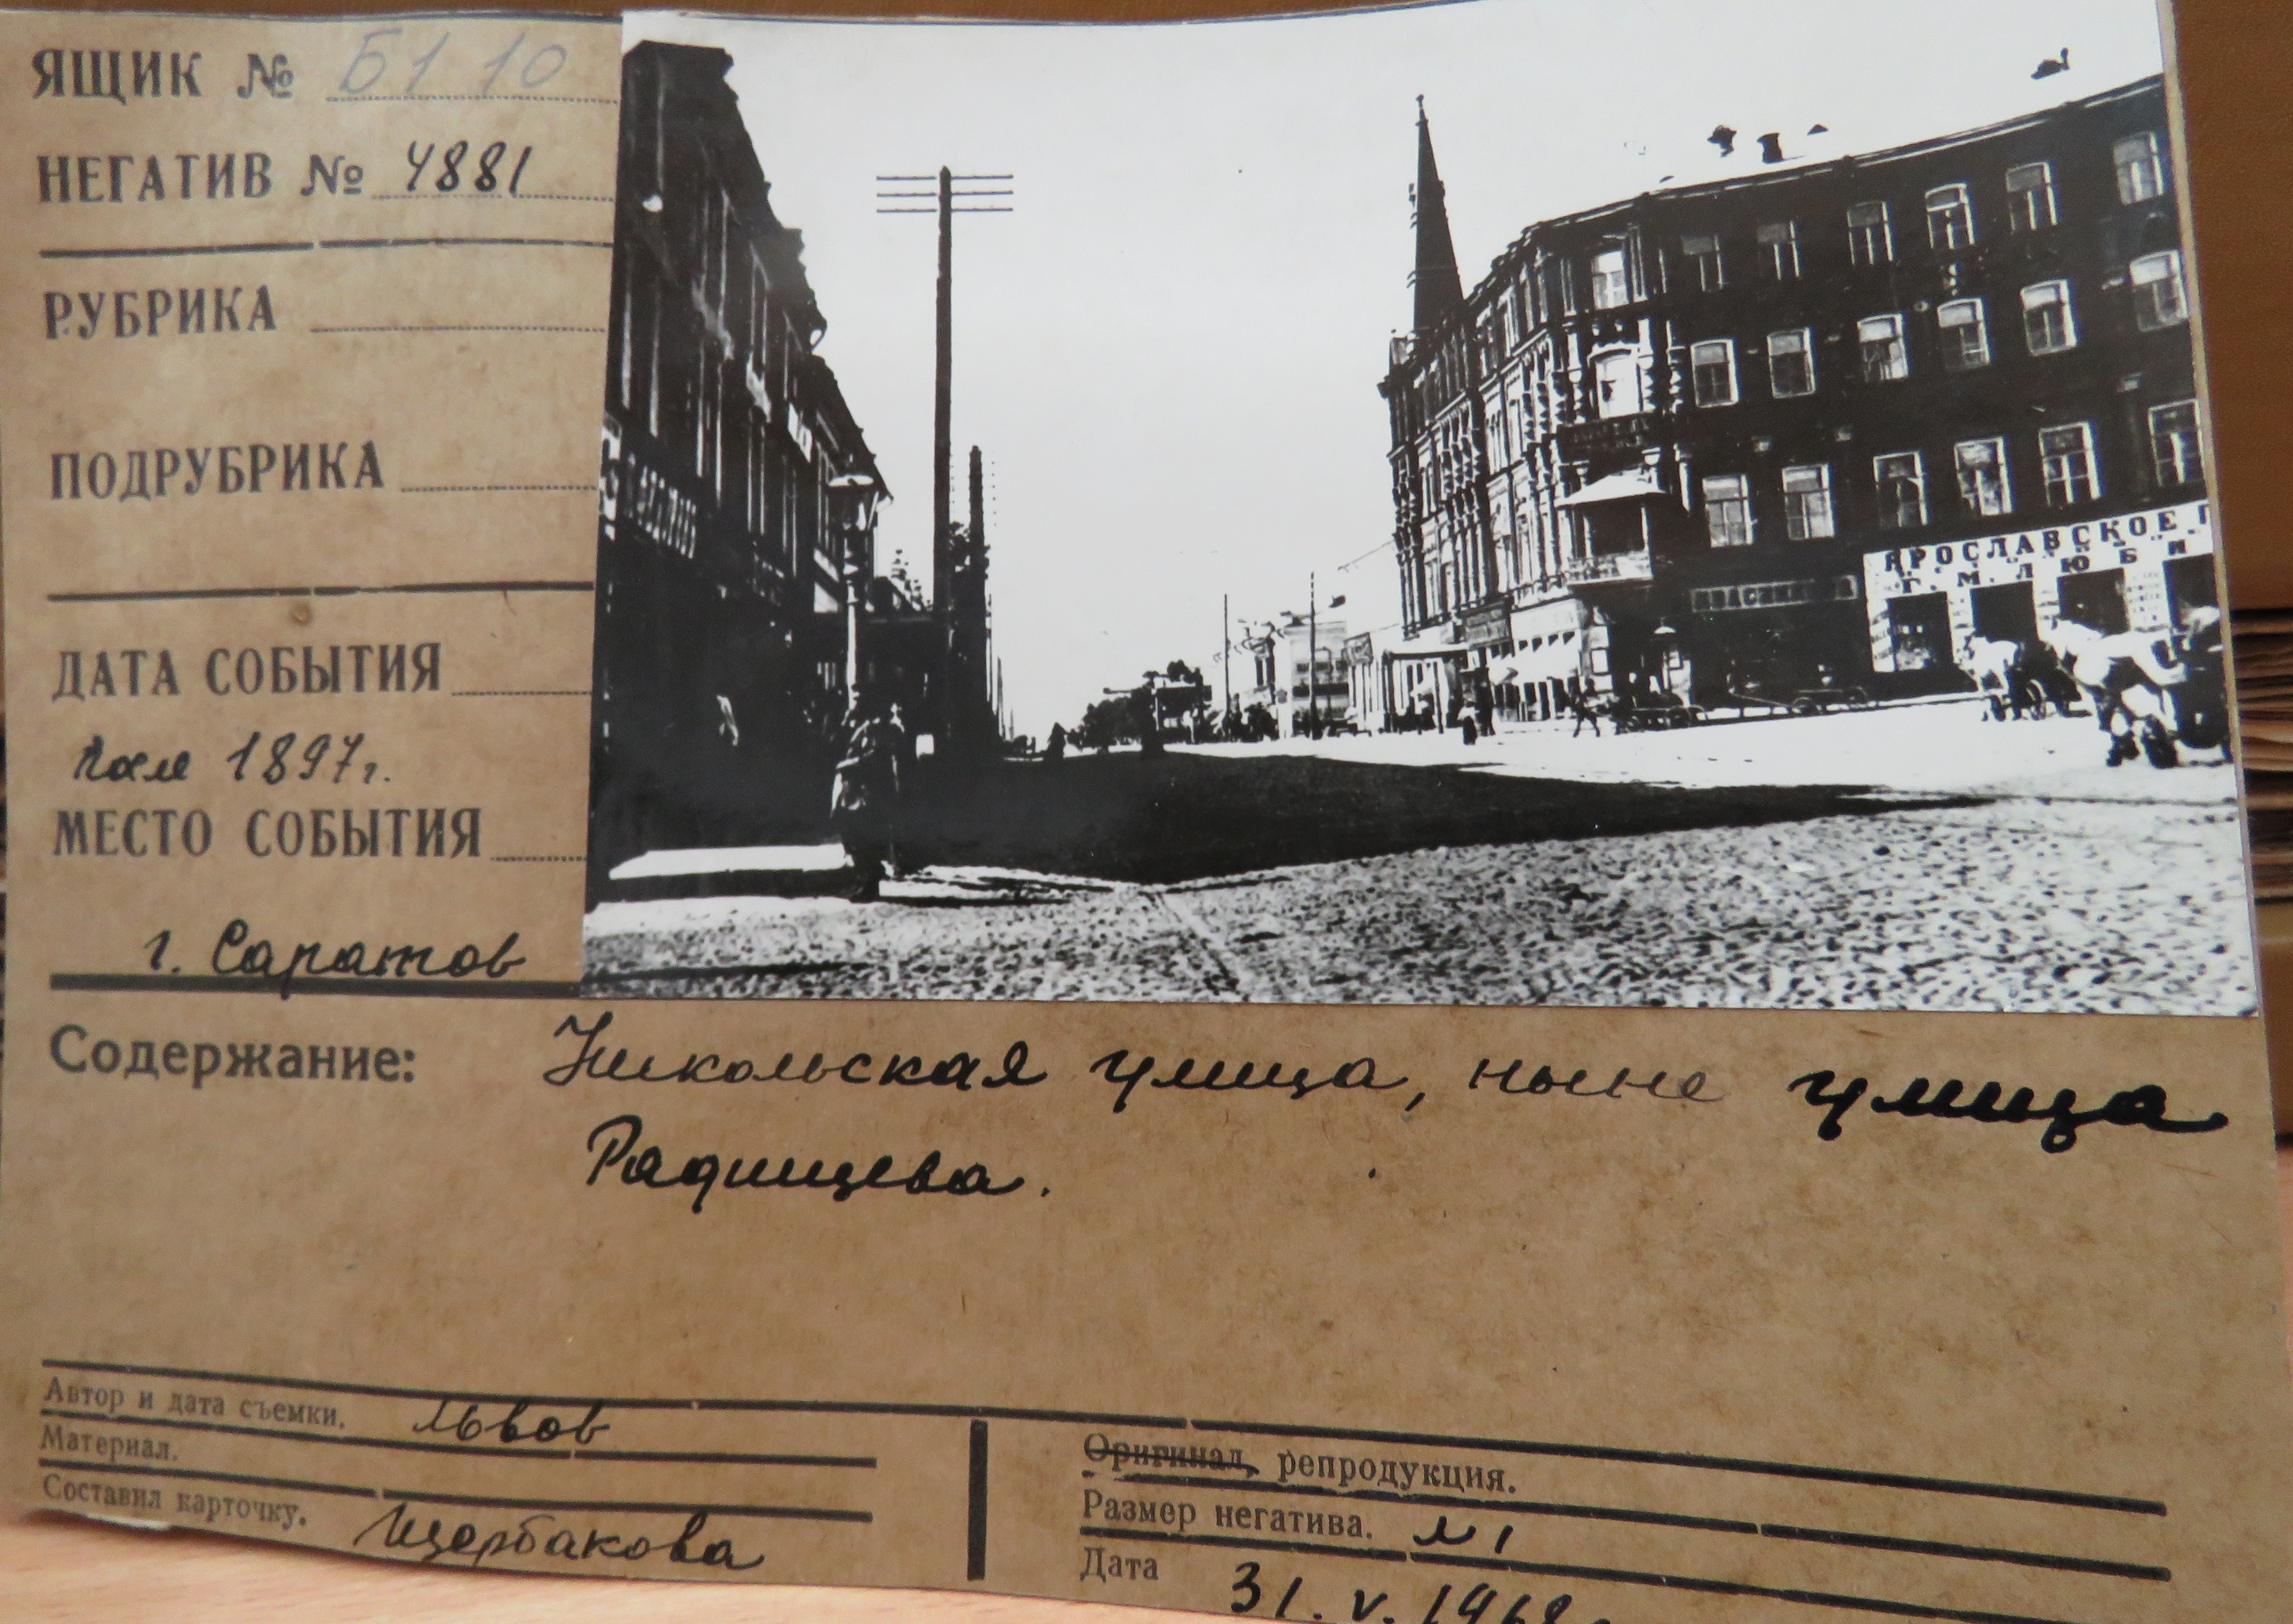 ЯЩИК № Б1 10
НЕГАТИВ № 4881
РУБРИКА
ПОДРУБРИКА
ДАТА СОБЫТИЯ
после 1897 г.
МЕСТО СОБЫТИЯ
г. Саратов
ЯРОСЛАВСКОЕ
Г. М. ЛЮБИ
Содержание: Никольская улица, ныне улица
Радищева.
Автор и дата съемки. Львов
Материал.
Составил карточку. Щербакова
Оригинал, репродукция.
Размер негатива. М 1
Дата 31. V. 1968